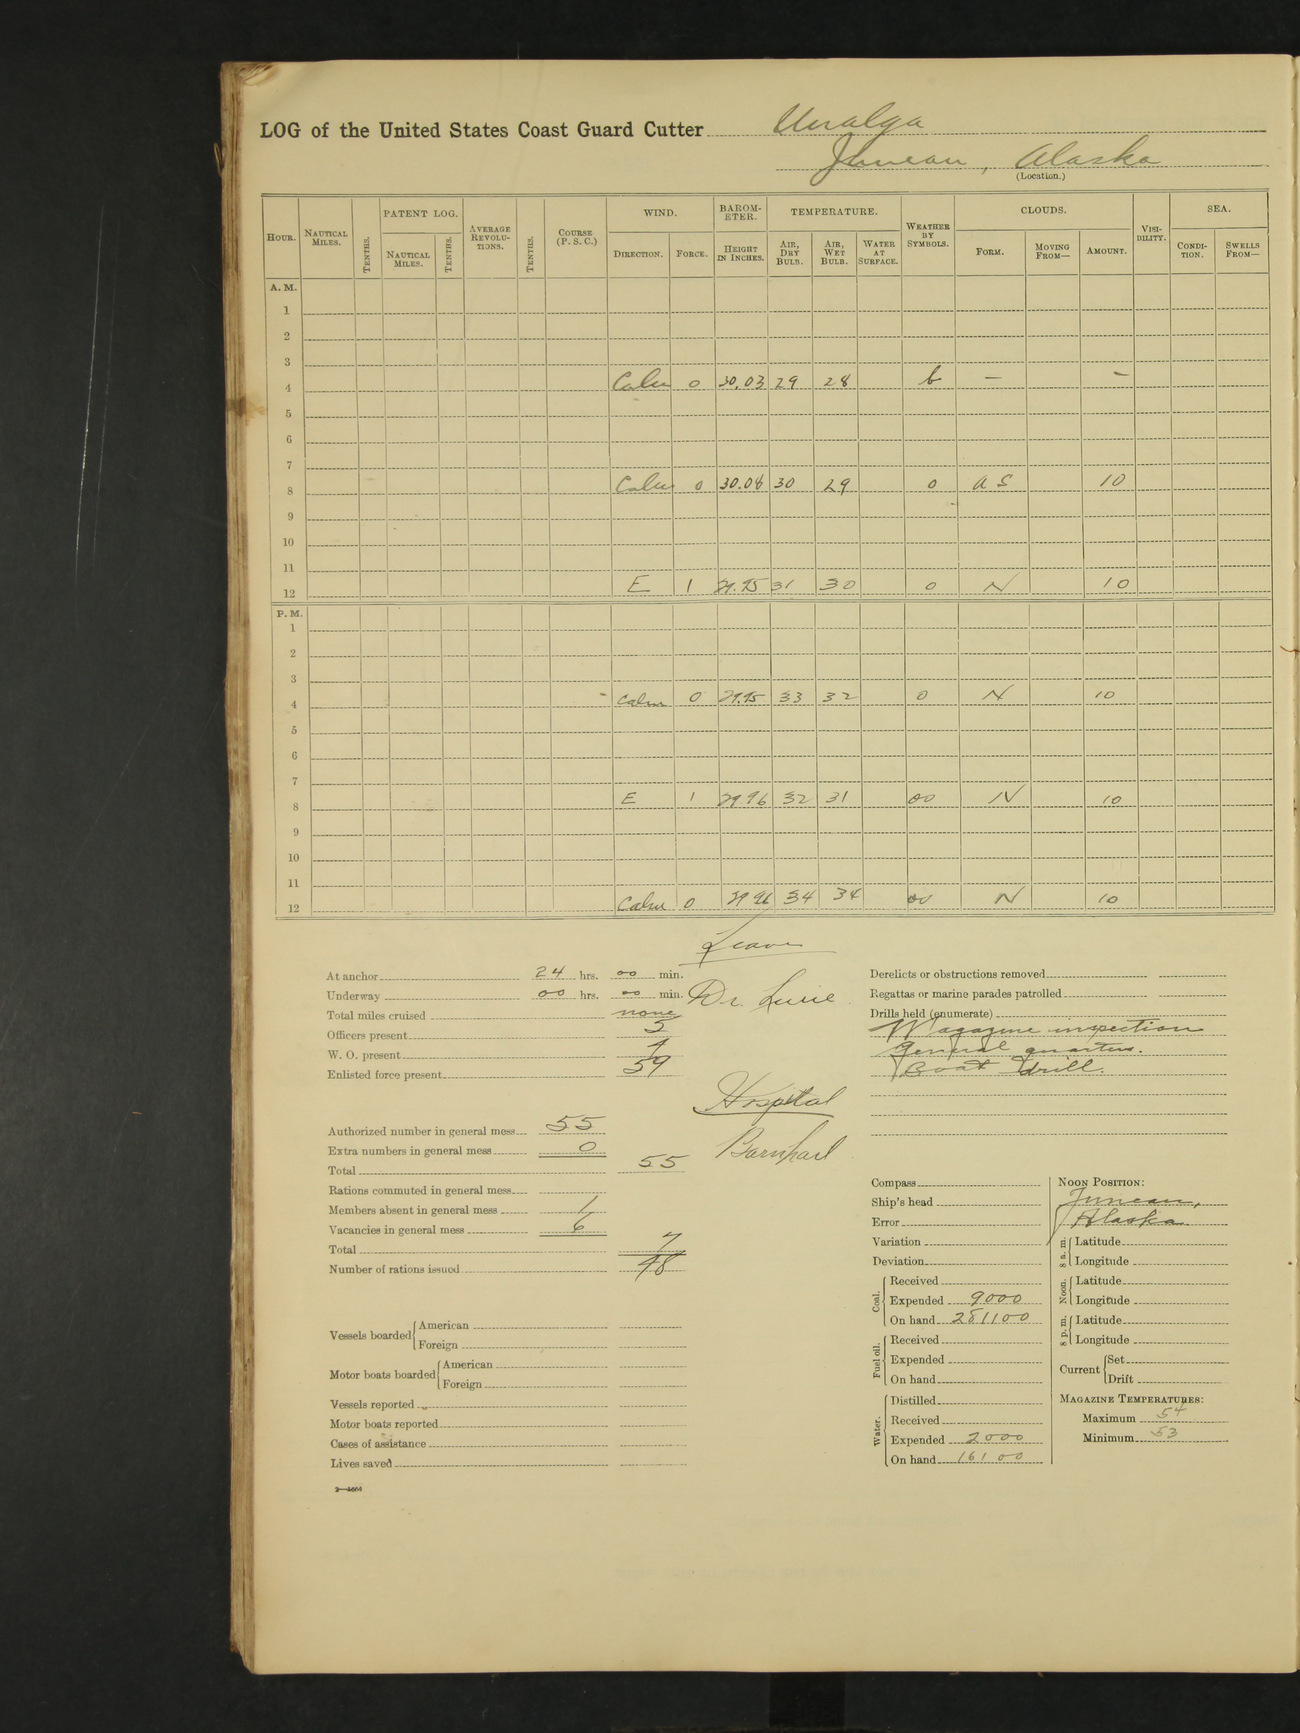 LOG of the United States Coast Guard Cutter Unalga
Juneau, Alaska
(Location.)
HOUR. NAUTICAL MILES. TENTHS. PATENT LOG. NAUTICAL MILES. TENTHS. AVERAGE REVOLUTIONS. TENTHS. COURSE (P. S. C.) WIND. DIRECTION. FORCE. BAROMETER. HEIGHT IN INCHES. TEMPERATURE. AIR, DRY BULB. AIR, WET BULB. WATER AT SURFACE. WEATHER BY SYMBOLS. CLOUDS. FORM. MOVING FROM— AMOUNT. VISIBILITY. SEA. CONDITION. SWELLS FROM—
A. M.
1
2
3
4 Calm 0 30.03 29 28 b — —
5
6
7
8 Calm 0 30.08 30 29 o A S 10
9
10
11
12 E 1 29.95 31 30 o N 10
P. M.
1
2
3
4 Calm 0 29.95 33 32 o N 10
5
6
7
8 E 1 29 96 32 31 oo N 10
9
10
11
12 Calm 0 29 96 34 34 oo N 10
Leave
At anchor 24 hrs. 00 min.
Underway 00 hrs. 00 min. Dr.
Total miles cruised none
Officers present 5
W. O. present 4
Enlisted force present 59
Hospital
Authorized number in general mess 55
Extra numbers in general mess 0
Total 55
Rations commuted in general mess
Members absent in general mess 1
Vacancies in general mess 6
Total 7
Number of rations issued 48
Vessels boarded American
Foreign
Motor boats boarded American
Foreign
Vessels reported
Motor boats reported
Cases of assistance
Lives saved
2—1664
Derelicts or obstructions removed
Regattas or marine parades patrolled
Drills held (enumerate)
Magazine inspection
General quarters.
Boat drill.
Compass
Ship's head
Error
Variation
Deviation
Coal. Received
Expended 9000
On hand 281100
Fuel oil. Received
Expended
On hand
Water. Distilled
Received
Expended 2000
On hand 16100
NOON POSITION:
Juneau,
Alaska
8 a. m. Latitude
Longitude
Noon. Latitude
Longitude
8 p. m. Latitude
Longitude
Current Set
Drift
MAGAZINE TEMPERATURES:
Maximum 54
Minimum 53